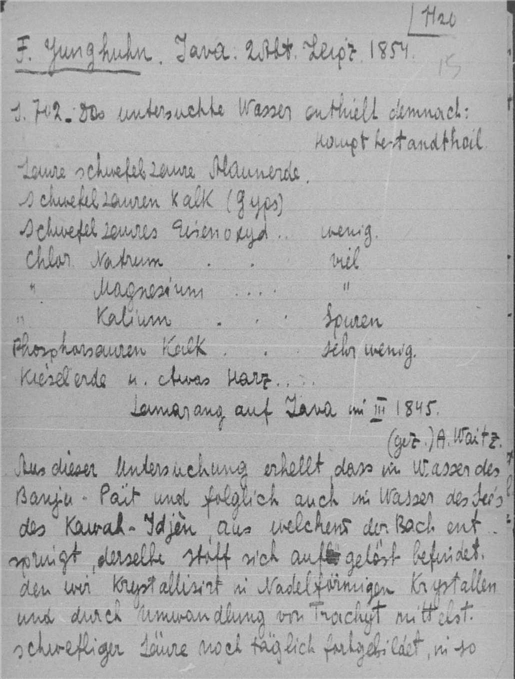 H20
F. Junghuhn. Java. 2 Abt. Leipz. 1854.
15
S. 702_ Das untersuchte Wasser enthielt demnach:
Hauptbestandtheil
Saure schwefelsaure Alaunerde.
Schwefelsauren Kalk (Gyps)
Schwefelsaures Eisenoxyd .. wenig.
Chlor. Natrum . . viel
" Magnesium .... "
" Kalium . . . Spuren
Phosphorsauren Kalk . . sehr wenig.
Kieselerde u. etwas Harz ....
Samarang auf Java im III 1845.
(gez.) A. Waitz.
Aus dieser Untersuchung erhellt dass im Wasser des
Banju-Pait und folglich auch im Wasser des See's
des Kawah-Idjèn aus welchem der Bach ent
springt, derselbe stoff sich aufgelöst befindet.
den wir Krystallisirt in Nadelförmigen Krystallen
und durch Umwandlung von Trachyt mittelst.
schwefliger Säure noch täglich fortgebildet, in so